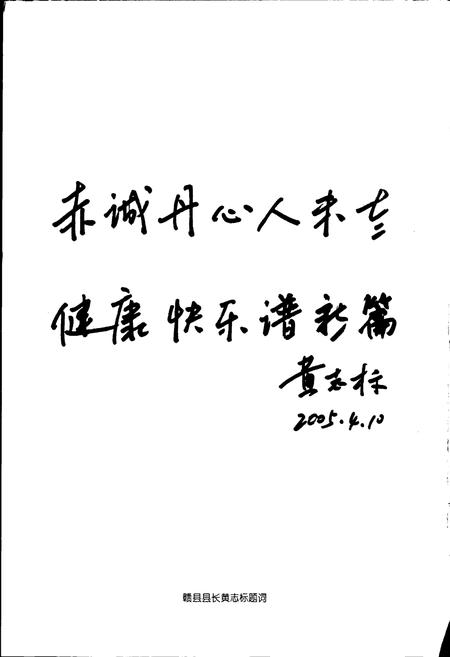 赤诚丹心人未老
健康快乐谱新篇
黄志标
2005.4.10
赣县县长黄志标题词